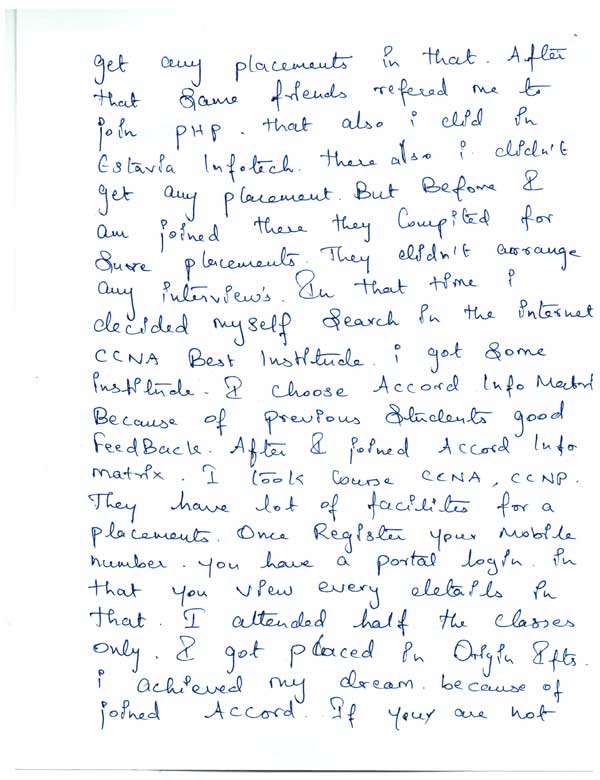 get any placements in that. After
that Same friends refered me to
join PHP. that also i did in
Estavia Infotech. there also i didn't
get any placement. But Before I
am joined there they Compited for
Sure placements. They didn't arrange
any interview's. In that time i
decided myself Search in the internet
CCNA Best Institude. i got Some
institude. I choose Accord Info Matri
Because of previous Students good
feedBack. After I joined Accord Info
matrix. I took Course CCNA, CCNP.
They have lot of facilites for a
placements. Once Register your Mobile
number. you have a portal login. in
that you view every details in
that. I attended half the classes
only. I got placed in Origin
i achieved my dream. because of
joined Accord. If your are not